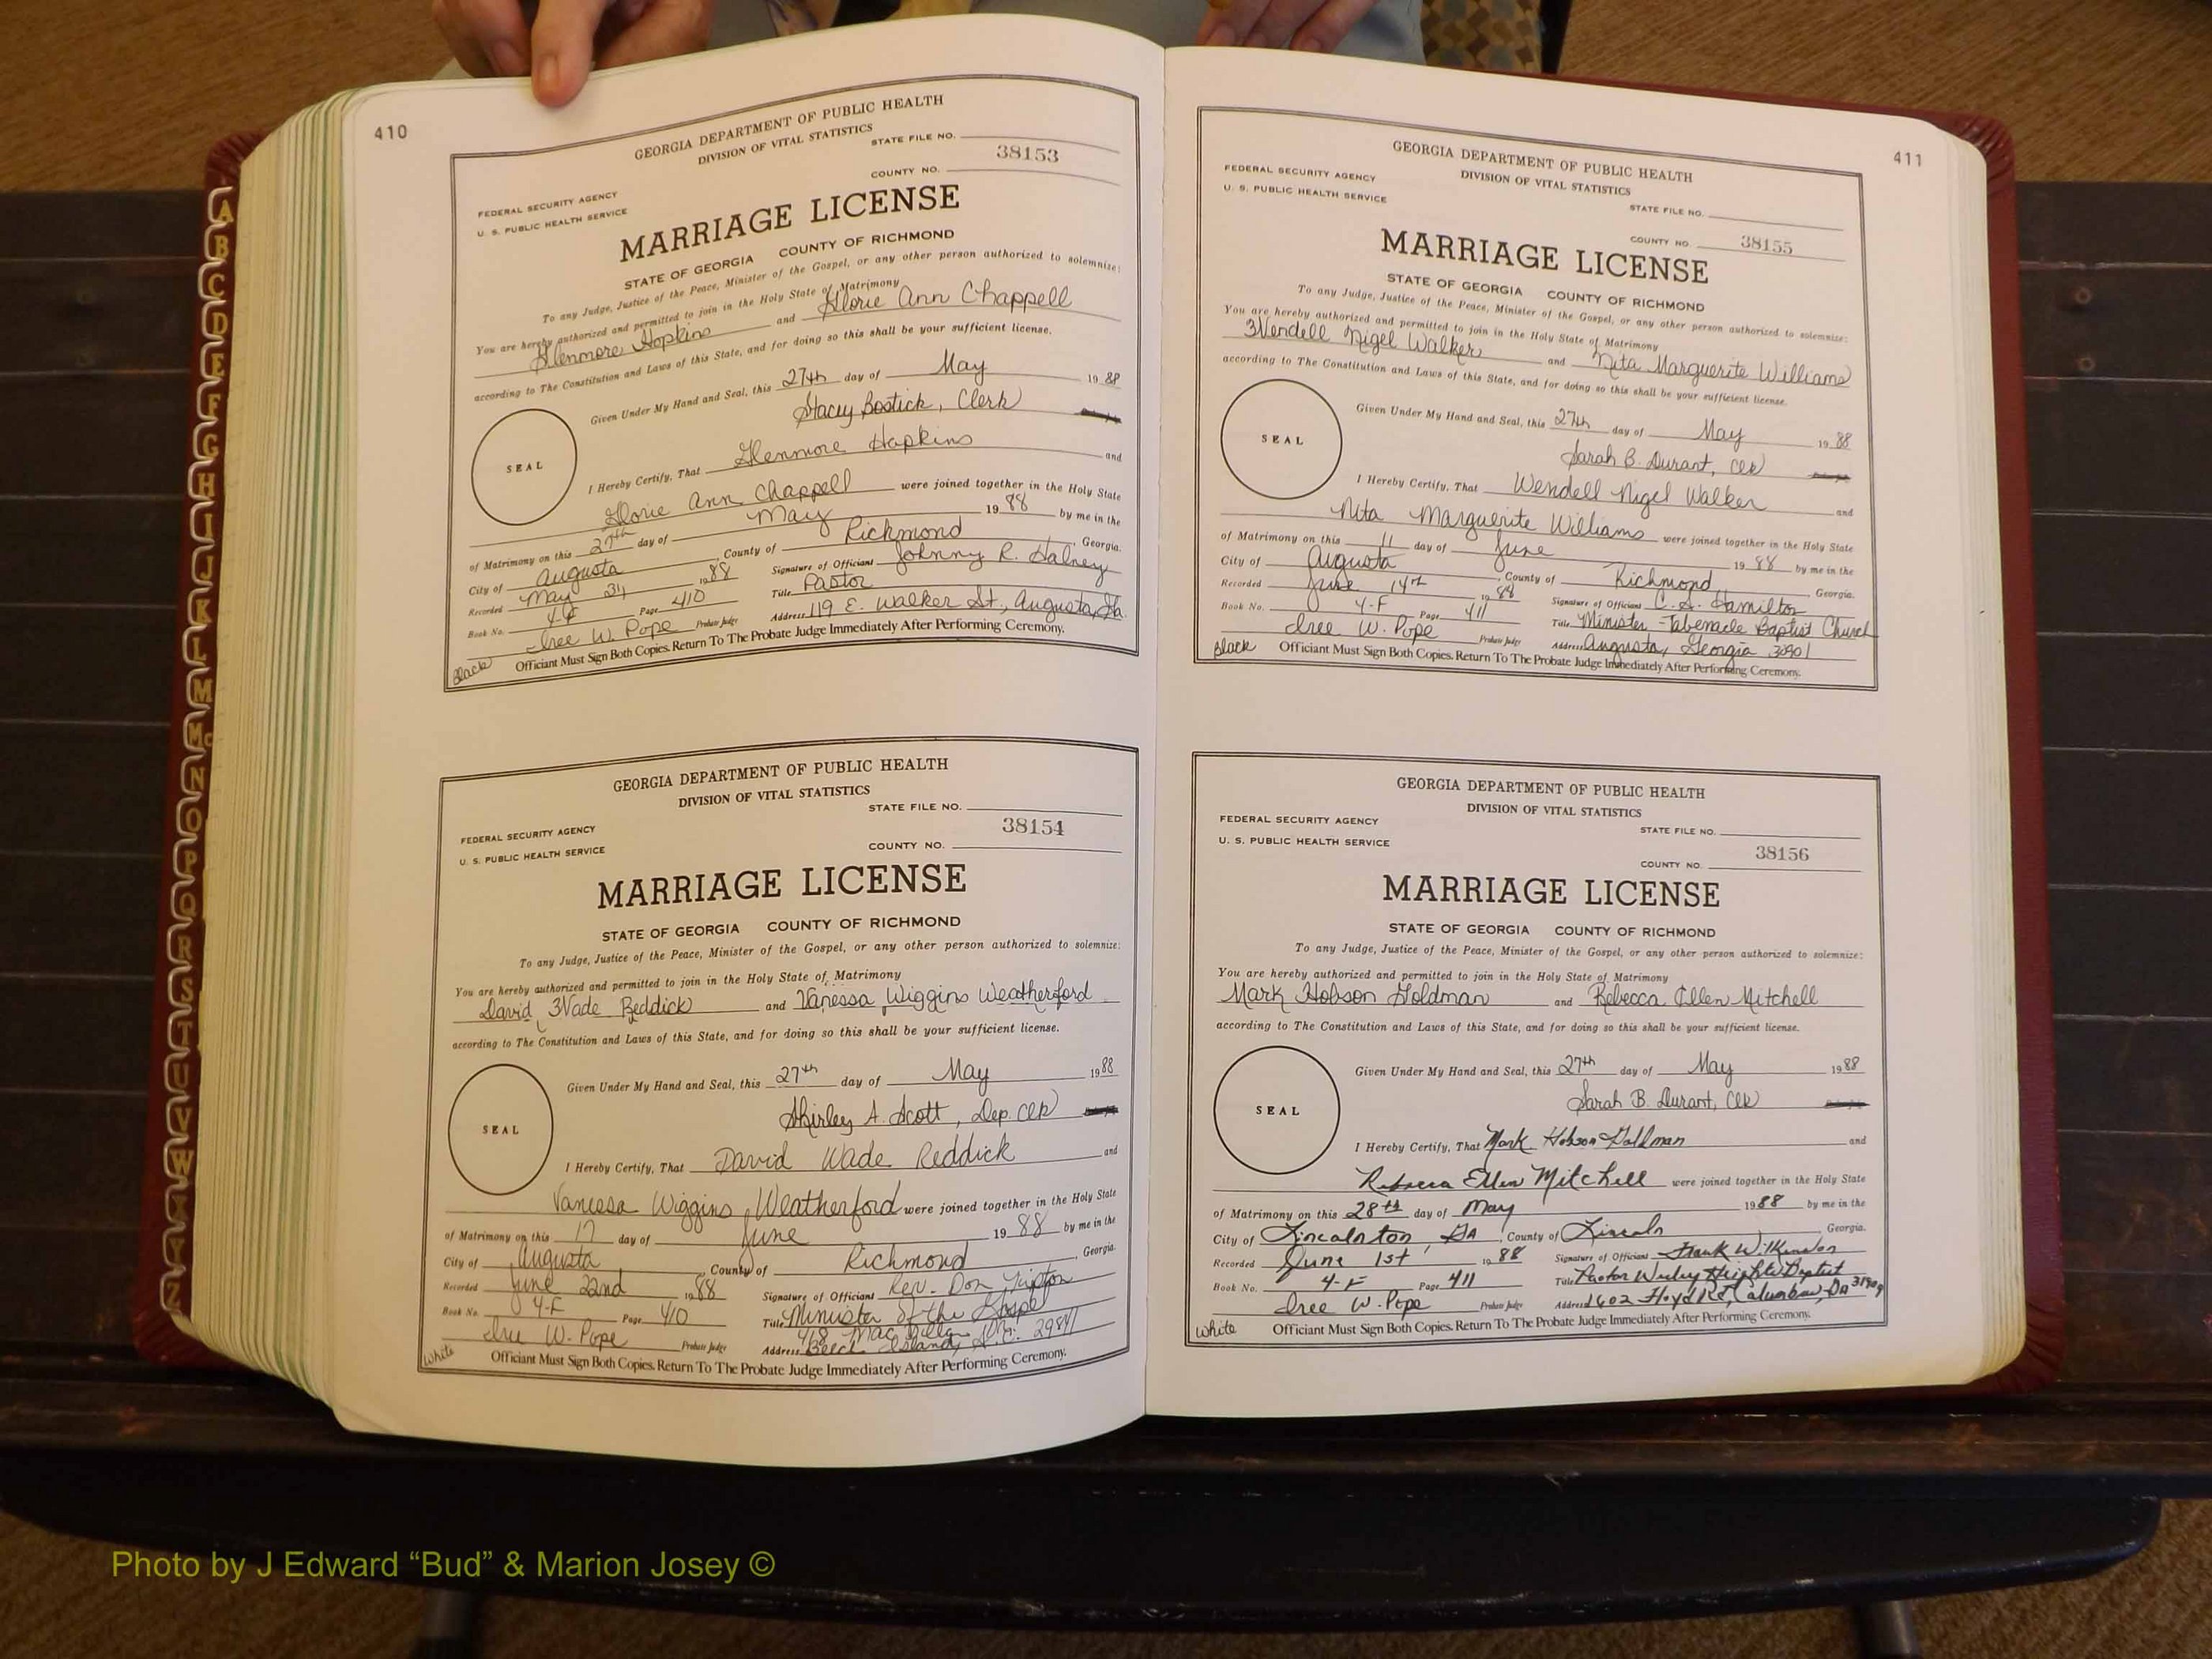 410
GEORGIA DEPARTMENT OF PUBLIC HEALTH
DIVISION OF VITAL STATISTICS
STATE FILE NO.
38153
COUNTY NO.
FEDERAL SECURITY AGENCY
U. S. PUBLIC HEALTH SERVICE
MARRIAGE LICENSE
STATE OF GEORGIA COUNTY OF RICHMOND
To any Judge, Justice of the Peace, Minister of the Gospel, or any other person authorized to solemnize:
You are hereby authorized and permitted to join in the Holy State of Matrimony
Glenmore Hopkins and Glorie Ann Chappell
according to The Constitution and Laws of this State, and for doing so this shall be your sufficient license.
Given Under My Hand and Seal, this 27th day of May 1988
Stacey Bostick, Clerk
SEAL
I Hereby Certify, That Glenmore Hopkins and
Glorie Ann Chappell were joined together in the Holy State
of Matrimony on this 27th day of May 1988 by me in the
City of Augusta, County of Richmond, Georgia.
Recorded May 31 1988 Signature of Officiant Johnny R.
Book No. 4-F Page 410 Title Pastor
Iree W. Pope Probate Judge Address 119 E. Walker St., Augusta, Ga.
Black Officiant Must Sign Both Copies. Return To The Probate Judge Immediately After Performing Ceremony.
GEORGIA DEPARTMENT OF PUBLIC HEALTH
DIVISION OF VITAL STATISTICS
STATE FILE NO.
38154
FEDERAL SECURITY AGENCY
U. S. PUBLIC HEALTH SERVICE
COUNTY NO.
MARRIAGE LICENSE
STATE OF GEORGIA COUNTY OF RICHMOND
To any Judge, Justice of the Peace, Minister of the Gospel, or any other person authorized to solemnize:
You are hereby authorized and permitted to join in the Holy State of Matrimony
David Wade Reddick and Vanessa Wiggins Weatherford
according to The Constitution and Laws of this State, and for doing so this shall be your sufficient license.
Given Under My Hand and Seal, this 27th day of May 1988
Shirley A. Scott, Dep. Clk
SEAL
I Hereby Certify, That David Wade Reddick and
Vanessa Wiggins Weatherford were joined together in the Holy State
of Matrimony on this 17 day of June 1988 by me in the
City of Augusta, County of Richmond, Georgia.
Recorded June 22nd 1988 Signature of Officiant Rev. Don Tipton
Book No. 4-F Page 410 Title Minister of the Gospel
Iree W. Pope Probate Judge Address Beech Island, S.C. 29841
White Officiant Must Sign Both Copies. Return To The Probate Judge Immediately After Performing Ceremony.
411
GEORGIA DEPARTMENT OF PUBLIC HEALTH
DIVISION OF VITAL STATISTICS
FEDERAL SECURITY AGENCY
U. S. PUBLIC HEALTH SERVICE
STATE FILE NO.
COUNTY NO. 38155
MARRIAGE LICENSE
STATE OF GEORGIA COUNTY OF RICHMOND
To any Judge, Justice of the Peace, Minister of the Gospel, or any other person authorized to solemnize:
You are hereby authorized and permitted to join in the Holy State of Matrimony
Wendell Nigel Walker and Nita Marguerite Williams
according to The Constitution and Laws of this State, and for doing so this shall be your sufficient license.
Given Under My Hand and Seal, this 27th day of May 1988
Sarah B. Durant, Clk
SEAL
I Hereby Certify, That Wendell Nigel Walker and
Nita Marguerite Williams were joined together in the Holy State
of Matrimony on this 11 day of June 1988 by me in the
City of Augusta, County of Richmond, Georgia.
Recorded June 14th 1988 Signature of Officiant C. S. Hamilton
Book No. 4-F Page 411 Title Minister - Tabernacle Baptist Church
Iree W. Pope Probate Judge Address Augusta, Georgia 30901
Black Officiant Must Sign Both Copies. Return To The Probate Judge Immediately After Performing Ceremony.
GEORGIA DEPARTMENT OF PUBLIC HEALTH
DIVISION OF VITAL STATISTICS
FEDERAL SECURITY AGENCY
STATE FILE NO.
U. S. PUBLIC HEALTH SERVICE
38156
COUNTY NO.
MARRIAGE LICENSE
STATE OF GEORGIA COUNTY OF RICHMOND
To any Judge, Justice of the Peace, Minister of the Gospel, or any other person authorized to solemnize:
You are hereby authorized and permitted to join in the Holy State of Matrimony
Mark Hobson Goldman and Rebecca Ellen Mitchell
according to The Constitution and Laws of this State, and for doing so this shall be your sufficient license.
Given Under My Hand and Seal, this 27th day of May 1988
Sarah B. Durant, Clk
SEAL
I Hereby Certify, That Mark Hobson Goldman and
Rebecca Ellen Mitchell were joined together in the Holy State
of Matrimony on this 28th day of May 1988 by me in the
City of Lincolnton, GA, County of Lincoln Georgia.
Recorded June 1st 1988 Signature of Officiant Frank Wilkinson
Book No. 4-F Page 411 Title Pastor Heights Baptist
Iree W. Pope Probate Judge Address 1602 Floyd Rd, Columbus, GA
White Officiant Must Sign Both Copies. Return To The Probate Judge Immediately After Performing Ceremony.
A
B
C
D
E
F
G
H
I
J
K
L
M
Mc
N
O
P
Q
R
S
T
U
V
W
X
Y
Z
Photo by J Edward “Bud” & Marion Josey ©